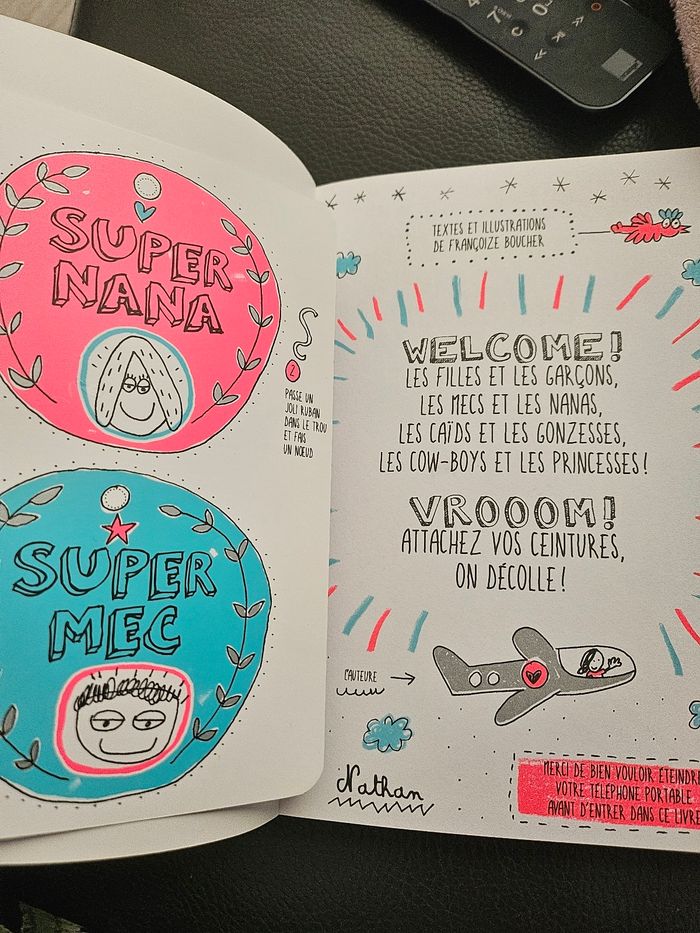 SUPER
NANA
2
PASSE UN
JOLI RUBAN
DANS LE TROU
ET FAIS
UN NOEUD
SUPER
MEC
TEXTES ET ILLUSTRATIONS
DE FRANÇOIZE BOUCHER
WELCOME!
LES FILLES ET LES GARÇONS,
LES MECS ET LES NANAS,
LES CAÏDS ET LES GONZESSES,
LES COW-BOYS ET LES PRINCESSES!
VROOOM!
ATTACHEZ VOS CEINTURES,
ON DÉCOLLE!
L'AUTEURE
Nathan
MERCI DE BIEN VOULOIR ÉTEINDRE
VOTRE TÉLÉPHONE PORTABLE
AVANT D'ENTRER DANS CE LIVRE